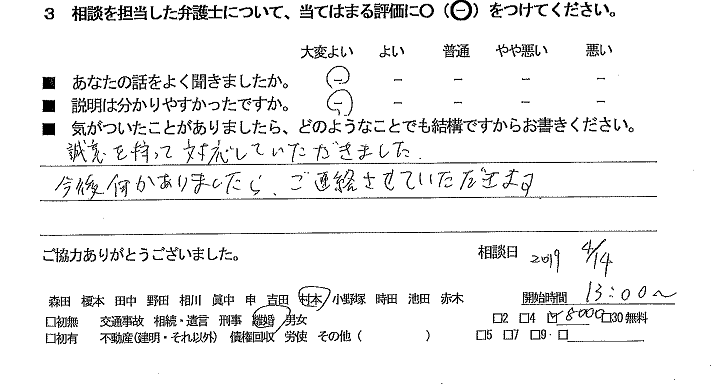 3 相談を担当した弁護士について、当てはまる評価に○（⊖）をつけてください。
大変よい よい 普通 やや悪い 悪い
■ あなたの話をよく聞きましたか。 － － － － －
■ 説明は分かりやすかったですか。 － － － － －
■ 気がついたことがありましたら、どのようなことでも結構ですからお書きください。
誠意を持って対応していただきました.
今後何かありましたら、ご連絡させていただきます
ご協力ありがとうございました。 相談日 2019 4/14
森田 榎本 田中 野田 相川 眞中 申 吉田 村本 小野塚 時田 池田 赤木 開始時間 13:00～
□初無 交通事故 相続・遺言 刑事 離婚 男女 □2 □4 ☑8000 □30無料
□初有 不動産(建明・それ以外) 債権回収 労使 その他( ) □5 □7 □9・□